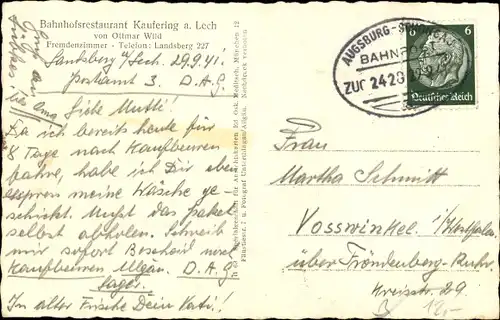 Bahnhofsrestaurant Kaufering a. Lech
von Ottmar Wild
Fremdenzimmer - Telefon: Landsberg 227
Landsberg a/Lech. 29.9.41.
Postamt 3. D.A.G.
Liebe Mutti!
Da ich bereits heute für
8 Tage nach Kaufbeuren
fahre, habe ich Dir eben
express meine Wäsche ge-
schickt. Mußt das Paket
selbst abholen. Schreib
mir sofort Bescheid nach
Kaufbeuren Allgäu. D.A.G
Lager.
In alter Frische Dein Vati!
Gruß an
AUGSBURG-
BAHNPOST
Zur 2420
6 6
Deutsches Reich
Frau
Martha Schmitt
Vosswinkel. i/Westfalen
über Fröndenberg-Ruhr
Kreisstr. 29
12,-